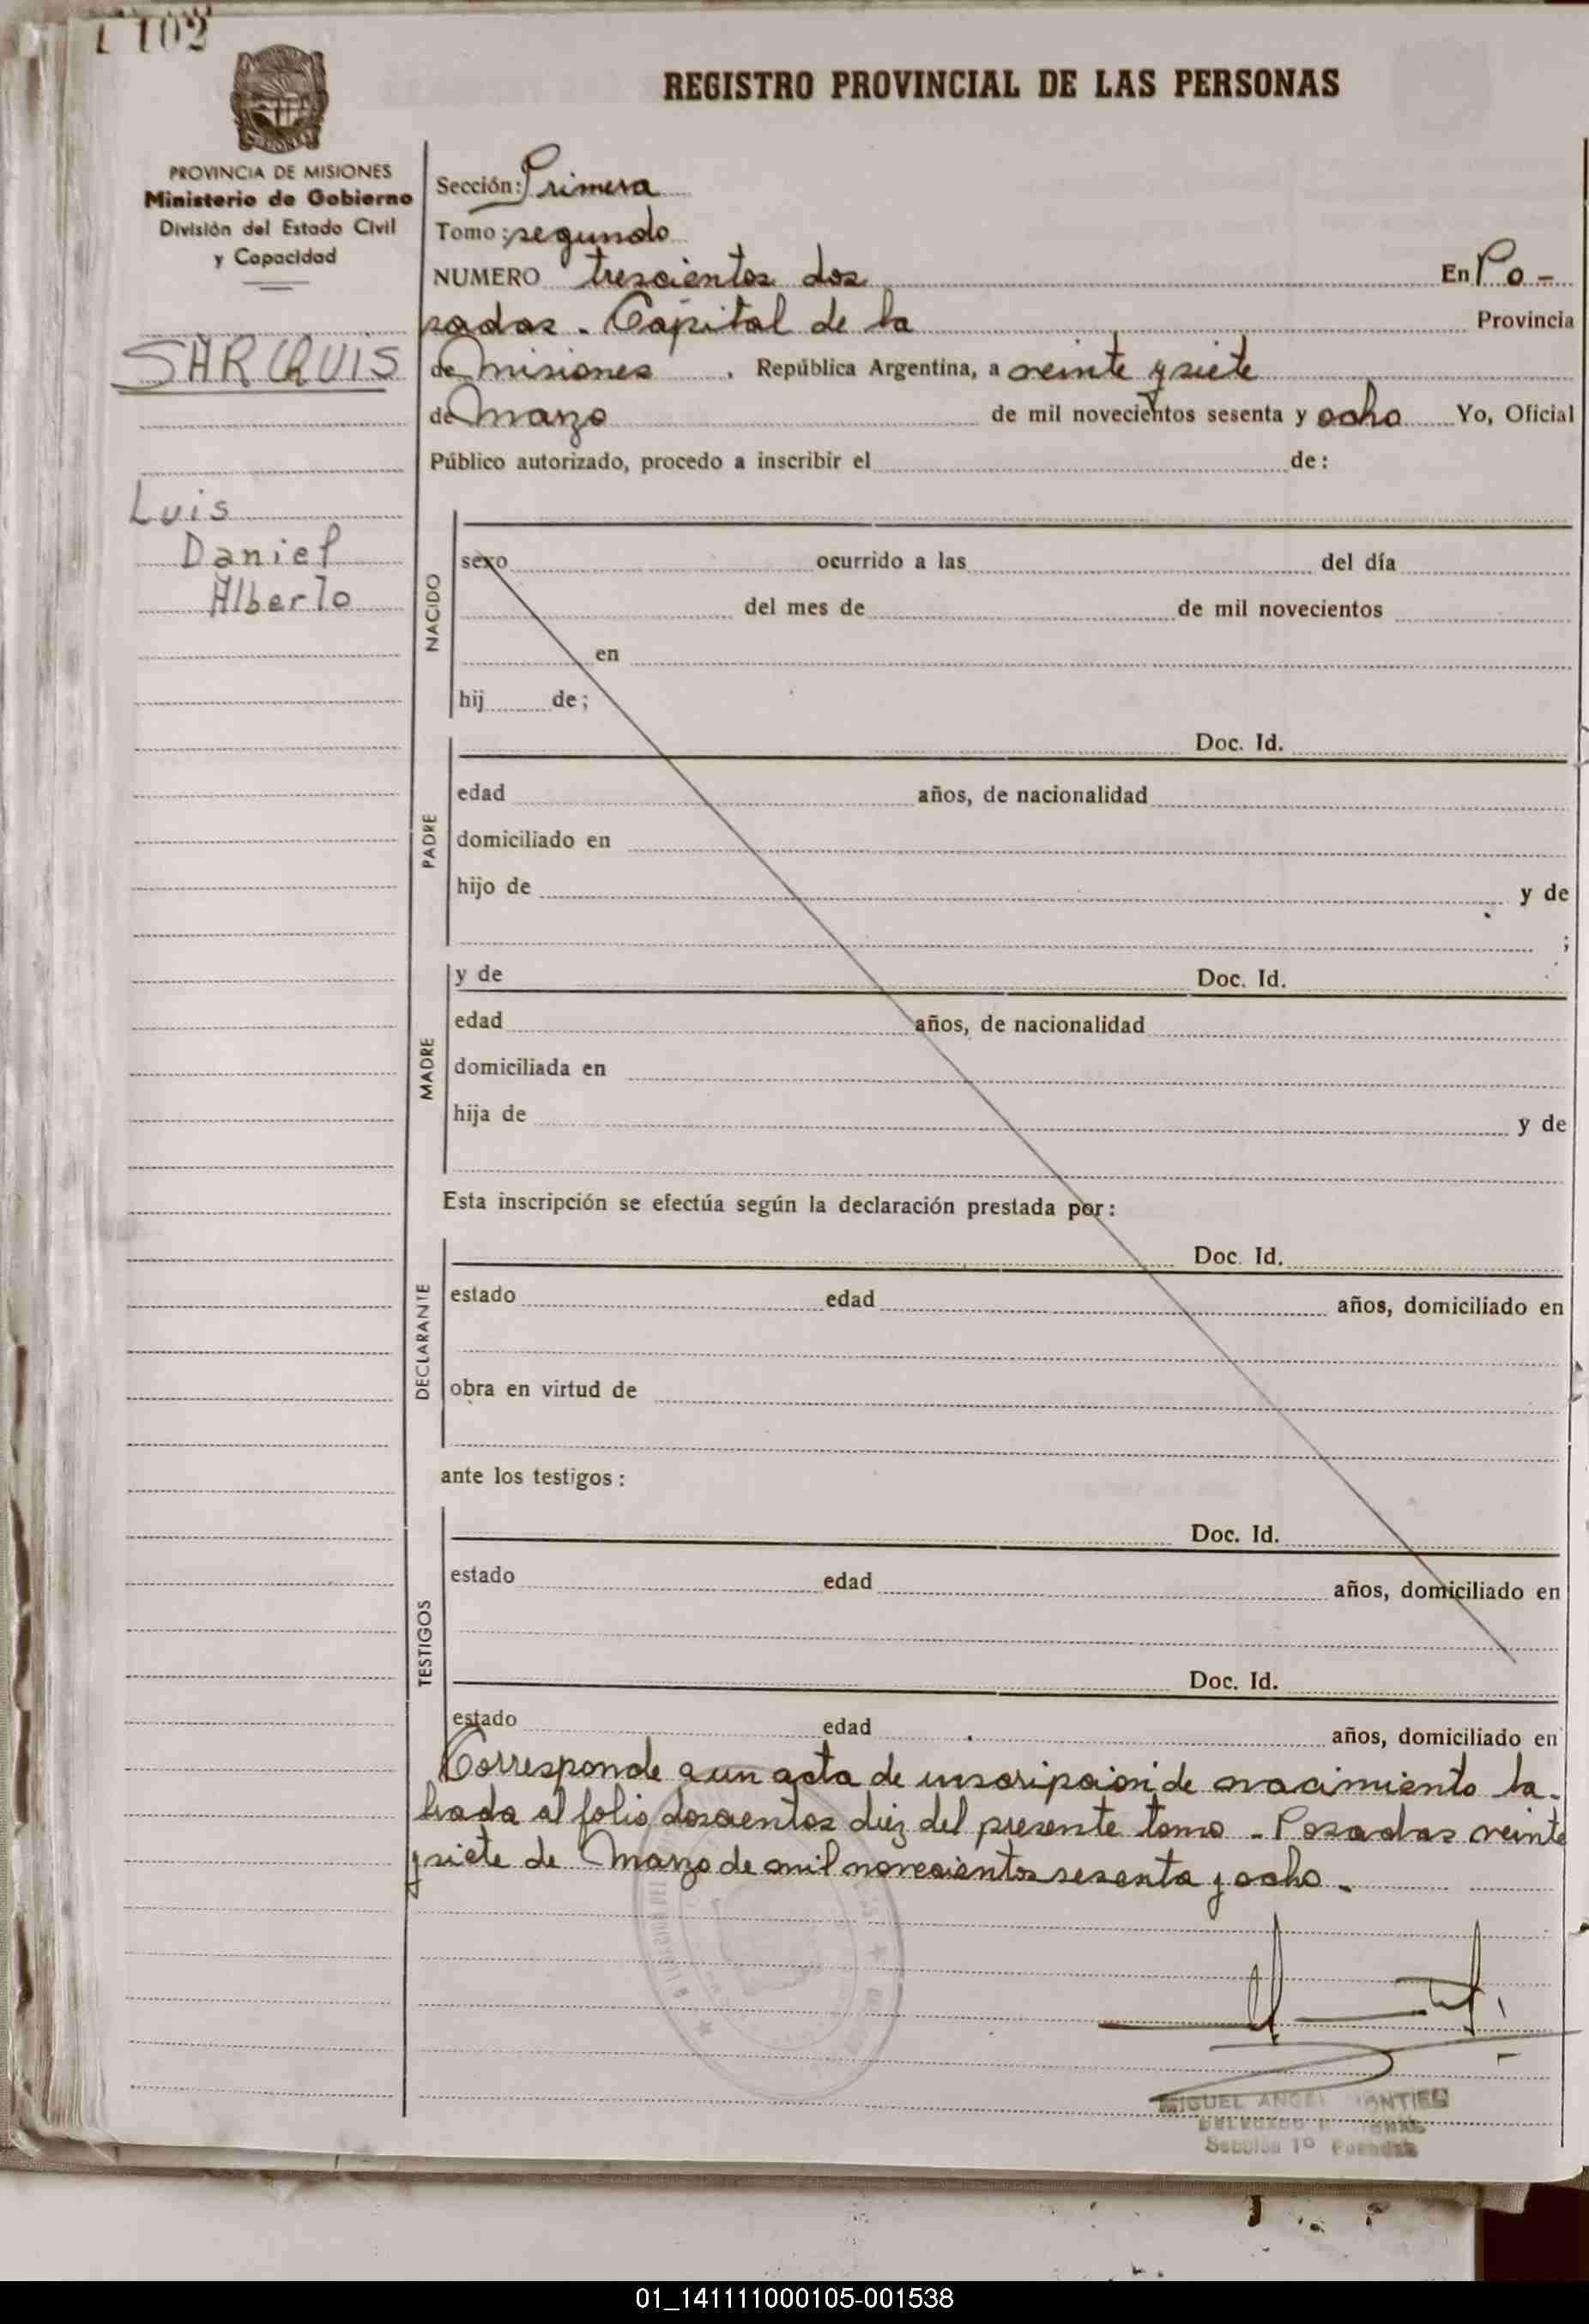 102
REGISTRO PROVINCIAL DE LAS PERSONAS
PROVINCIA DE MISIONES
Ministerio de Gobierno
División del Estado Civil
y Capacidad
SARQUIS
Luis
Daniel
Alberto
Sección: Primera
Tomo: segundo
NUMERO trescientos dos En Po-
sadas. Capital de la Provincia
de Misiones, República Argentina, a veinte y siete
de Marzo de mil novecientos sesenta y ocho Yo, Oficial
Público autorizado, procedo a inscribir el de:
NACIDO
sexo ocurrido a las del día
del mes de de mil novecientos
en
hij de;
PADRE
Doc. Id.
edad años, de nacionalidad
domiciliado en
hijo de y de
;
MADRE
y de Doc. Id.
edad años, de nacionalidad
domiciliada en
hija de y de
Esta inscripción se efectúa según la declaración prestada por:
DECLARANTE
Doc. Id.
estado edad años, domiciliado en
obra en virtud de
ante los testigos:
TESTIGOS
Doc. Id.
estado edad años, domiciliado en
Doc. Id.
estado edad años, domiciliado en
Corresponde a un acta de inscripción de nacimiento la-
brada al folio doscientos diez del presente tomo - Posadas veinte
y siete de Marzo de mil novecientos sesenta y ocho.
MIGUEL ANGEL
Sección 1º Posadas
01_141111000105-001538